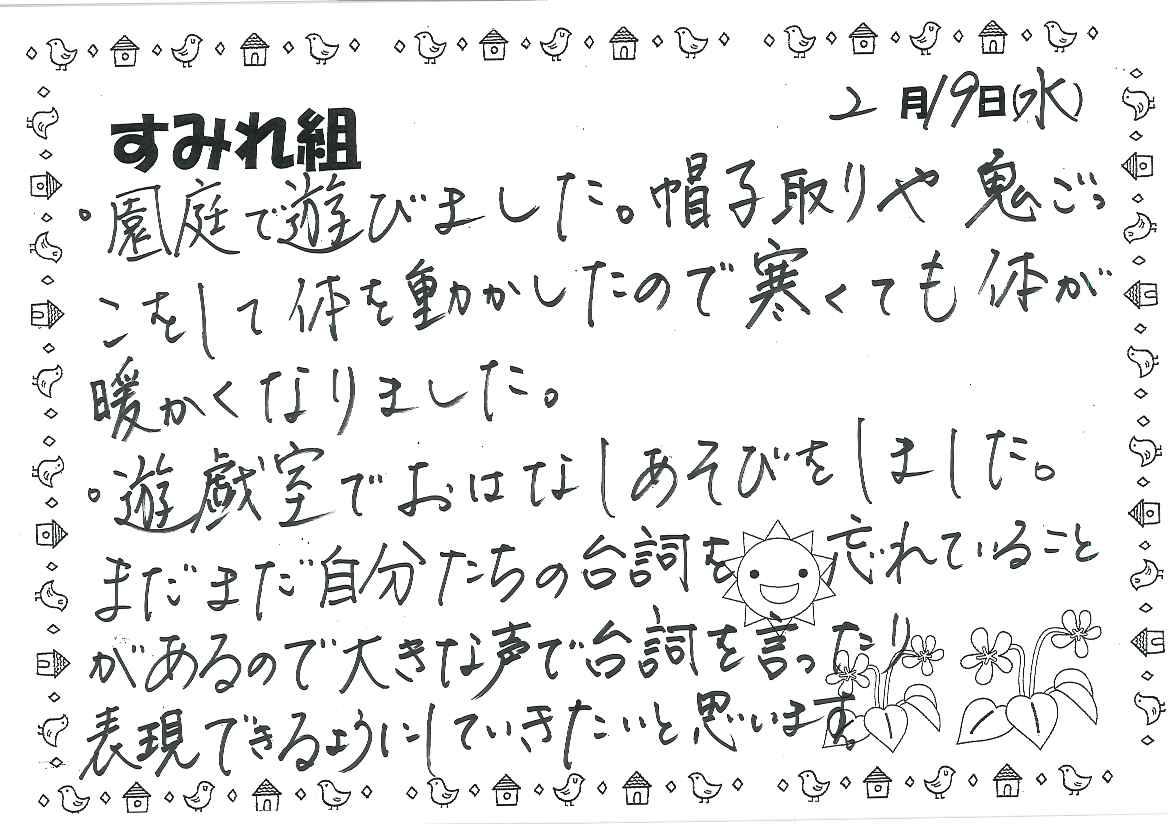 2月19日(水)
すみれ組
・園庭で遊びました。帽子取りや鬼ごっ
こをして体を動かしたので寒くても体が
暖かくなりました。
・遊戯室でおはなしあそびをしました。
まだまだ自分たちの台詞を忘れていること
があるので大きな声で台詞を言ったり
表現できるようにしていきたいと思います。